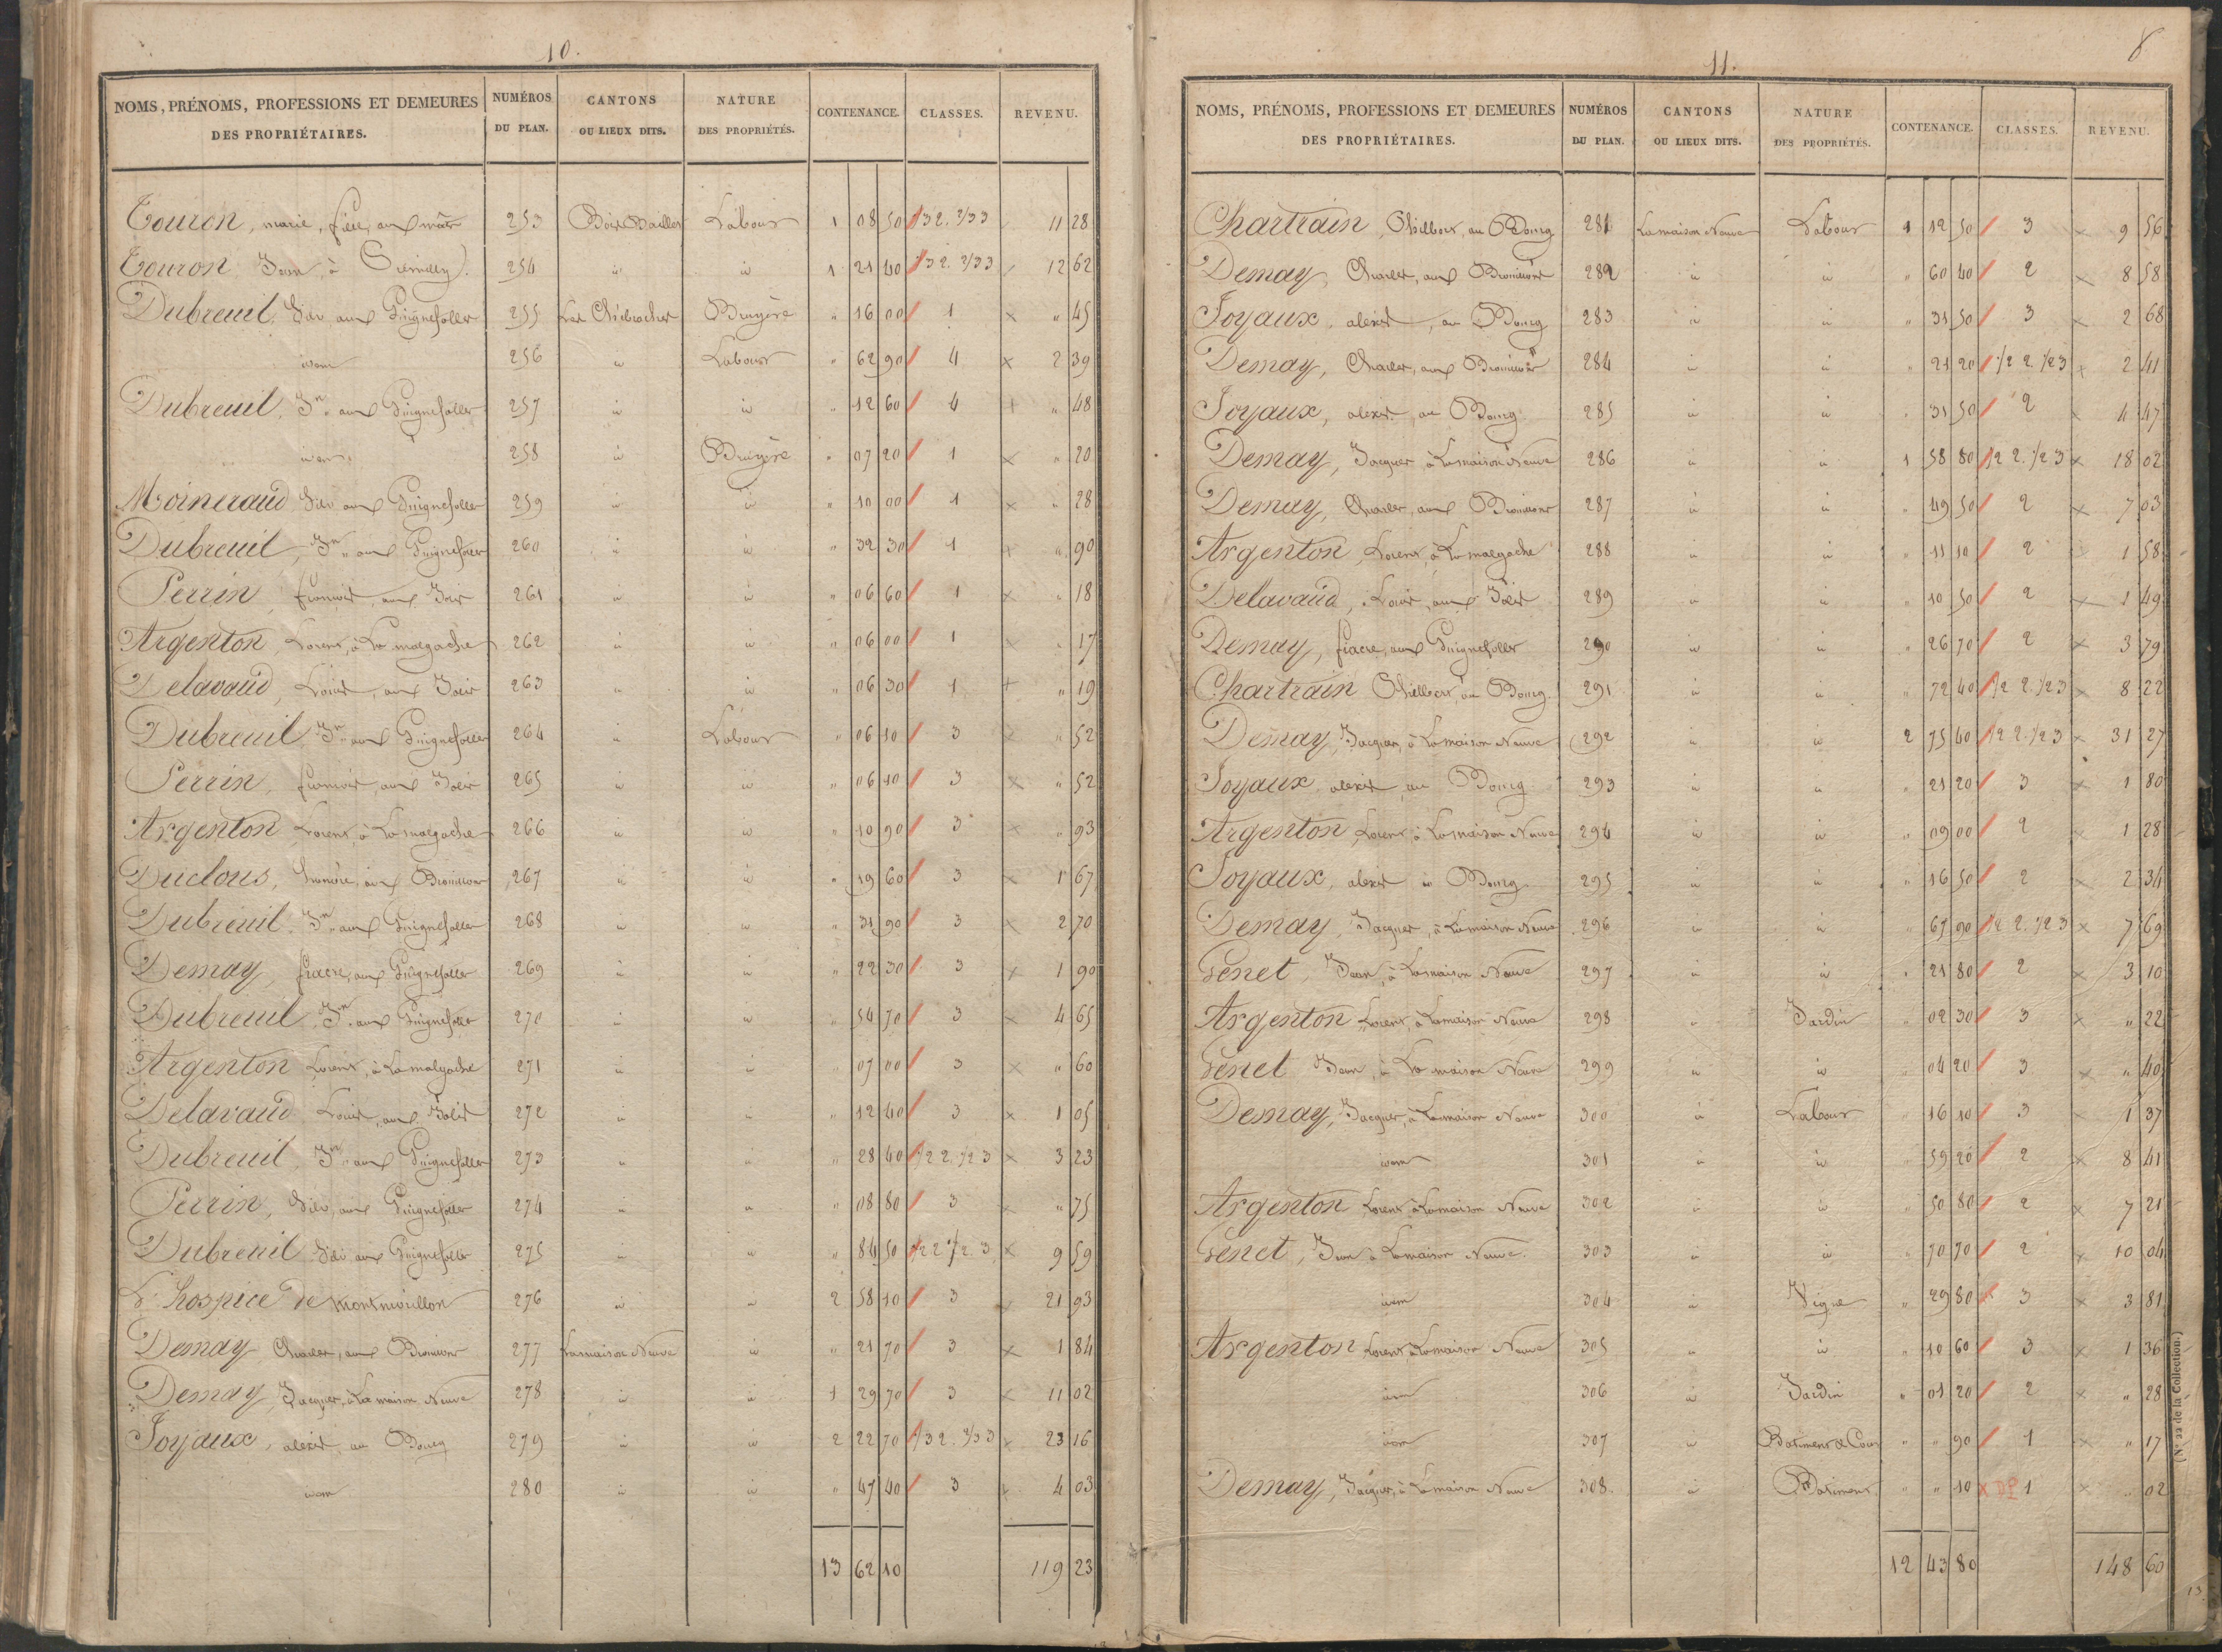 10.
NOMS, PRÉNOMS, PROFESSIONS ET DEMEURES DES PROPRIÉTAIRES. NUMÉROS DU PLAN. CANTONS OU LIEUX DITS. NATURE DES PROPRIÉTÉS. CONTENANCE. CLASSES. REVENU.
Touron, marie, aux 253 Labour 1 08 50 1/3 2. 2/3 3 11 28
Touron Jean, à 254 id 1 21 40 1/3 2. 2/3 3 12 62
Dubreuil, Silv. aux Guignefolles 255 Bruyère " 16 00 1 " 45
idem 256 id Labour " 62 90 4 2 39
Dubreuil, Jn. aux Guignefolles 257 id id " 12 60 4 " 48
idem 258 id Bruyère " 07 20 1 " 20
Moineraud Silv. aux Guignefolles 259 id id " 10 00 1 " 28
Dubreuil, Jn. aux Guignefolles 260 id id " 32 30 1 " 90
Perrin, francois, aux Jolis 261 id id " 06 60 1 " 18
Argenton, Lorent, à La malgache 262 id id " 06 00 1 " 17
Delavaud, Louis, aux Jolis 263 id id " 06 30 1 " 19
Dubreuil, Jn. aux Guignefolles 264 id Labour " 06 10 3 " 52
Perrin, francois, aux Jolis 265 id id " 06 10 3 " 52
Argenton Lorent, à La malgache 266 id id " 10 90 3 " 93
Duclous, aux 267 id id " 19 60 3 1 67
Dubreuil, Jn. aux Guignefolles 268 id id " 31 90 3 2 70
Demay, fiacre, aux Guignefolles 269 id id " 22 30 3 1 90
Dubreuil, Jn. aux Guignefolles 270 id id " 54 70 3 4 65
Argenton Lorent, à La malgache 271 id id " 07 00 3 " 60
Delavaud Louis, aux Jolis 272 id id " 12 40 3 1 05
Dubreuil, Jn. aux Guignefolles 273 id id " 28 40 1/2 2. 1/2 3 3 23
Perrin, Silv. aux Guignefolles 274 id id " 08 80 3 " 75
Dubreuil Silv. aux Guignefolles 275 id id " 84 50 1/2 2 1/2. 3 9 59
L'hospice de Montmorillon 276 id id 2 58 10 3 21 93
Demay Charles, aux 277 La maison Neuve id " 21 70 3 1 84
Demay, Jacques, à La maison Neuve 278 id id 1 29 70 3 11 02
Joyaux, alexis, au Bourg 279 id id 2 22 70 1/3 2. 2/3 3 23 16
idem 280 id id " 47 40 3 4 03
13 62 10 119 23
8
11.
NOMS, PRÉNOMS, PROFESSIONS ET DEMEURES DES PROPRIÉTAIRES. NUMÉROS DU PLAN. CANTONS OU LIEUX DITS. NATURE DES PROPRIÉTÉS. CONTENANCE. CLASSES. REVENU.
Chartrain, au Bourg 281 La maison Neuve Labour 1 12 50 3 9 56
Demay, Charles, aux 282 id id " 60 40 2 8 58
Joyaux, alexis, au Bourg 283 id id " 31 50 3 2 68
Demay, Charles, aux 284 id id " 21 20 1/2 2. 1/2 3 2 41
Joyaux, alexis, au Bourg 285 id id " 31 50 2 4 47
Demay, Jacques, à La maison Neuve 286 id id 1 58 80 1/2 2. 1/2 3 18 02
Demay, Charles, aux 287 id id " 49 50 2 7 03
Argenton, Lorent, à La malgache 288 id id " 11 10 2 1 58
Delavaud, Louis, aux Jolis 289 id id " 10 50 2 1 49
Demay, fiacre, aux Guignefolles 290 id id " 26 70 2 3 79
Chartrain au Bourg. 291 id id " 72 40 1/2 2. 1/2 3 8 22
Demay, Jacques, à La maison Neuve 292 id id 2 75 40 1/2 2. 1/2 3 31 27
Joyaux alexis, au Bourg 293 id id " 21 20 3 1 80
Argenton, Lorent, à La maison Neuve 294 id id " 09 00 2 1 28
Joyaux, alexis au Bourg 295 id id " 16 50 2 2 34
Demay, Jacques, à La maison Neuve 296 id id " 67 90 1/2 2. 1/2 3 7 69
Genet, Jean, à La maison Neuve 297 id id " 21 80 2 3 10
Argenton Lorent, à La maison Neuve 298 id Jardin " 02 30 3 " 22
Genet Jean, à La maison Neuve 299 id id " 04 20 3 " 40
Demay, Jacques, à La maison Neuve 300 id Labour " 16 10 3 1 37
idem 301 id id " 59 20 2 8 41
Argenton Lorent, à La maison Neuve 302 id id " 50 80 2 7 21
Genet, Jean à La maison Neuve. 303 id id " 70 70 2 10 04
idem 304 id Vigne " 29 80 3 3 81
Argenton Lorent, à La maison Neuve 305 id id " 10 60 3 1 36
idem 306 id Jardin " 01 20 2 " 28
idem 307 id Batiment & Cour " " 90 1 " 17
Demay, Jacques, à La maison Neuve 308 id Batiment " " 10 1 " 02
12 43 80 148 60
(N° 22 de la Collection.)